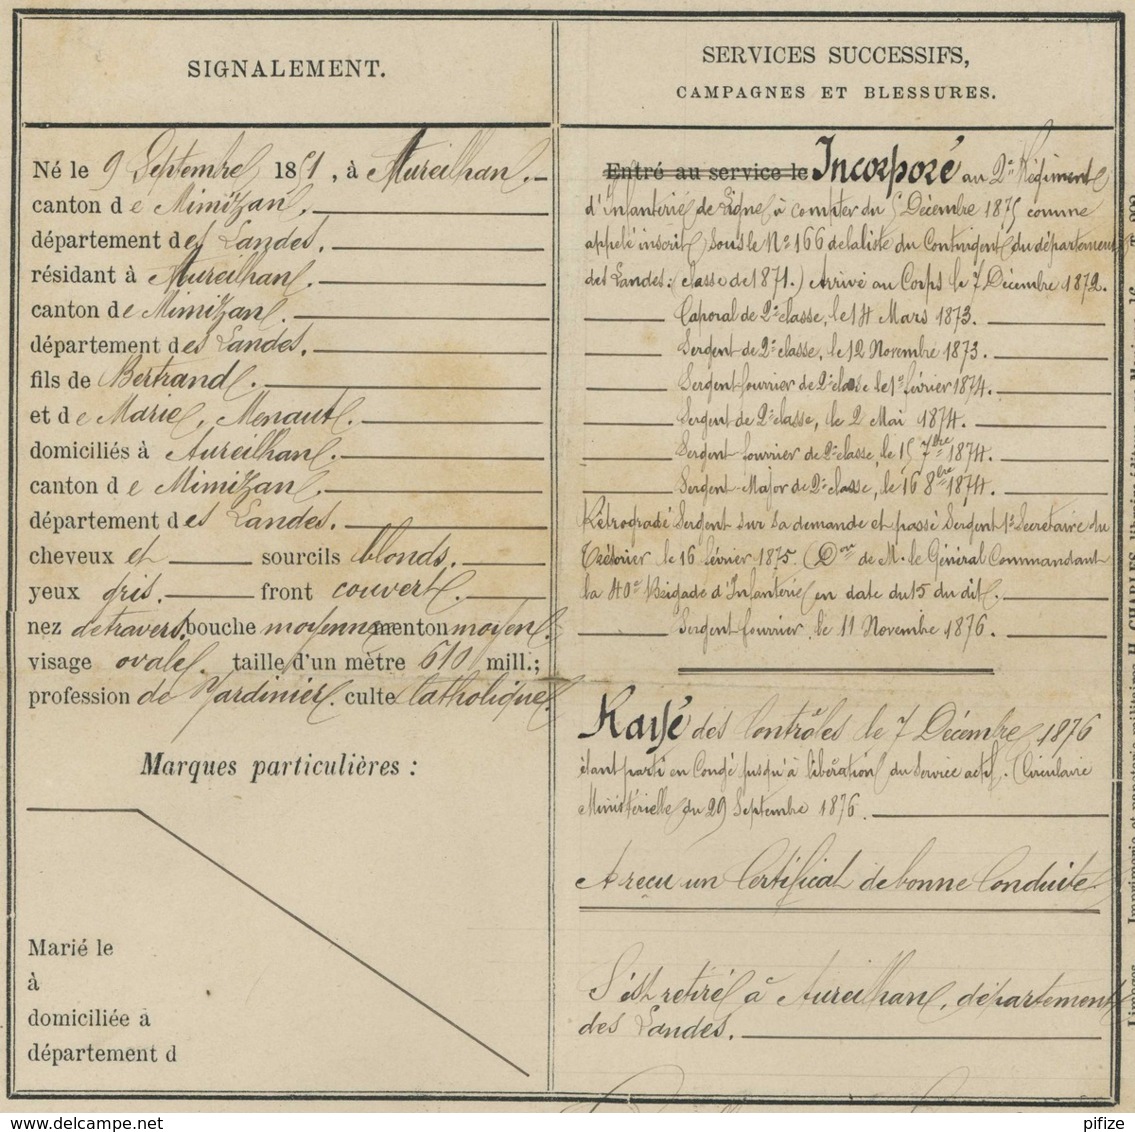 SIGNALEMENT.
Né le 9 Septembre 1851, à Aureilhan.
canton de Mimizan.
département des Landes.
résidant à Aureilhan.
canton de Mimizan.
département des Landes.
fils de Bertrand.
et de Marie, Menaut.
domiciliés à Aureilhan.
canton de Mimizan.
département des Landes.
cheveux et sourcils blonds.
yeux gris. front couvert.
nez de travers. bouche moyenne menton moyen.
visage ovale. taille d'un mètre 610 mill.;
profession de Jardinier. culte Catholique.
Marques particulières :
Marié le
à
domiciliée à
département d
SERVICES SUCCESSIFS,
CAMPAGNES ET BLESSURES.
Entré au service le Incorporé au 2e Régiment
d'Infanterie de Ligne à compter du 5 Décembre 1875 comme
appelé inscrit (sous le No 166 de la liste du Contingent du département
des Landes: classe de 1871.) Arrivé au Corps le 7 Décembre 1872.
Caporal de 2e classe, le 14 Mars 1873.
Sergent de 2e classe, le 12 Novembre 1873.
Sergent-fourrier de 2e classe le 1er février 1874.
Sergent de 2e classe, le 2 Mai 1874.
Sergent-fourrier de 2e classe, le 15 7bre 1874.
Sergent-Major de 2e classe, le 16 8bre 1874.
Rétrogradé Sergent sur sa demande et passé Sergent 1er Secrétaire du
Trésorier le 16 février 1875. (Don de M. le Général Commandant
la 40e Brigade d'Infanterie en date du 15 du dit.
Sergent fourrier, le 11 Novembre 1876.
Rayé des Contrôles le 7 Décembre 1876
étant parti en Congé jusqu'à libération du Service actif. (Circulaire
Ministérielle du 29 Septembre 1876.
A reçu un Certificat de bonne Conduite.
S'est retiré à Aureilhan, département
des Landes.
pifize